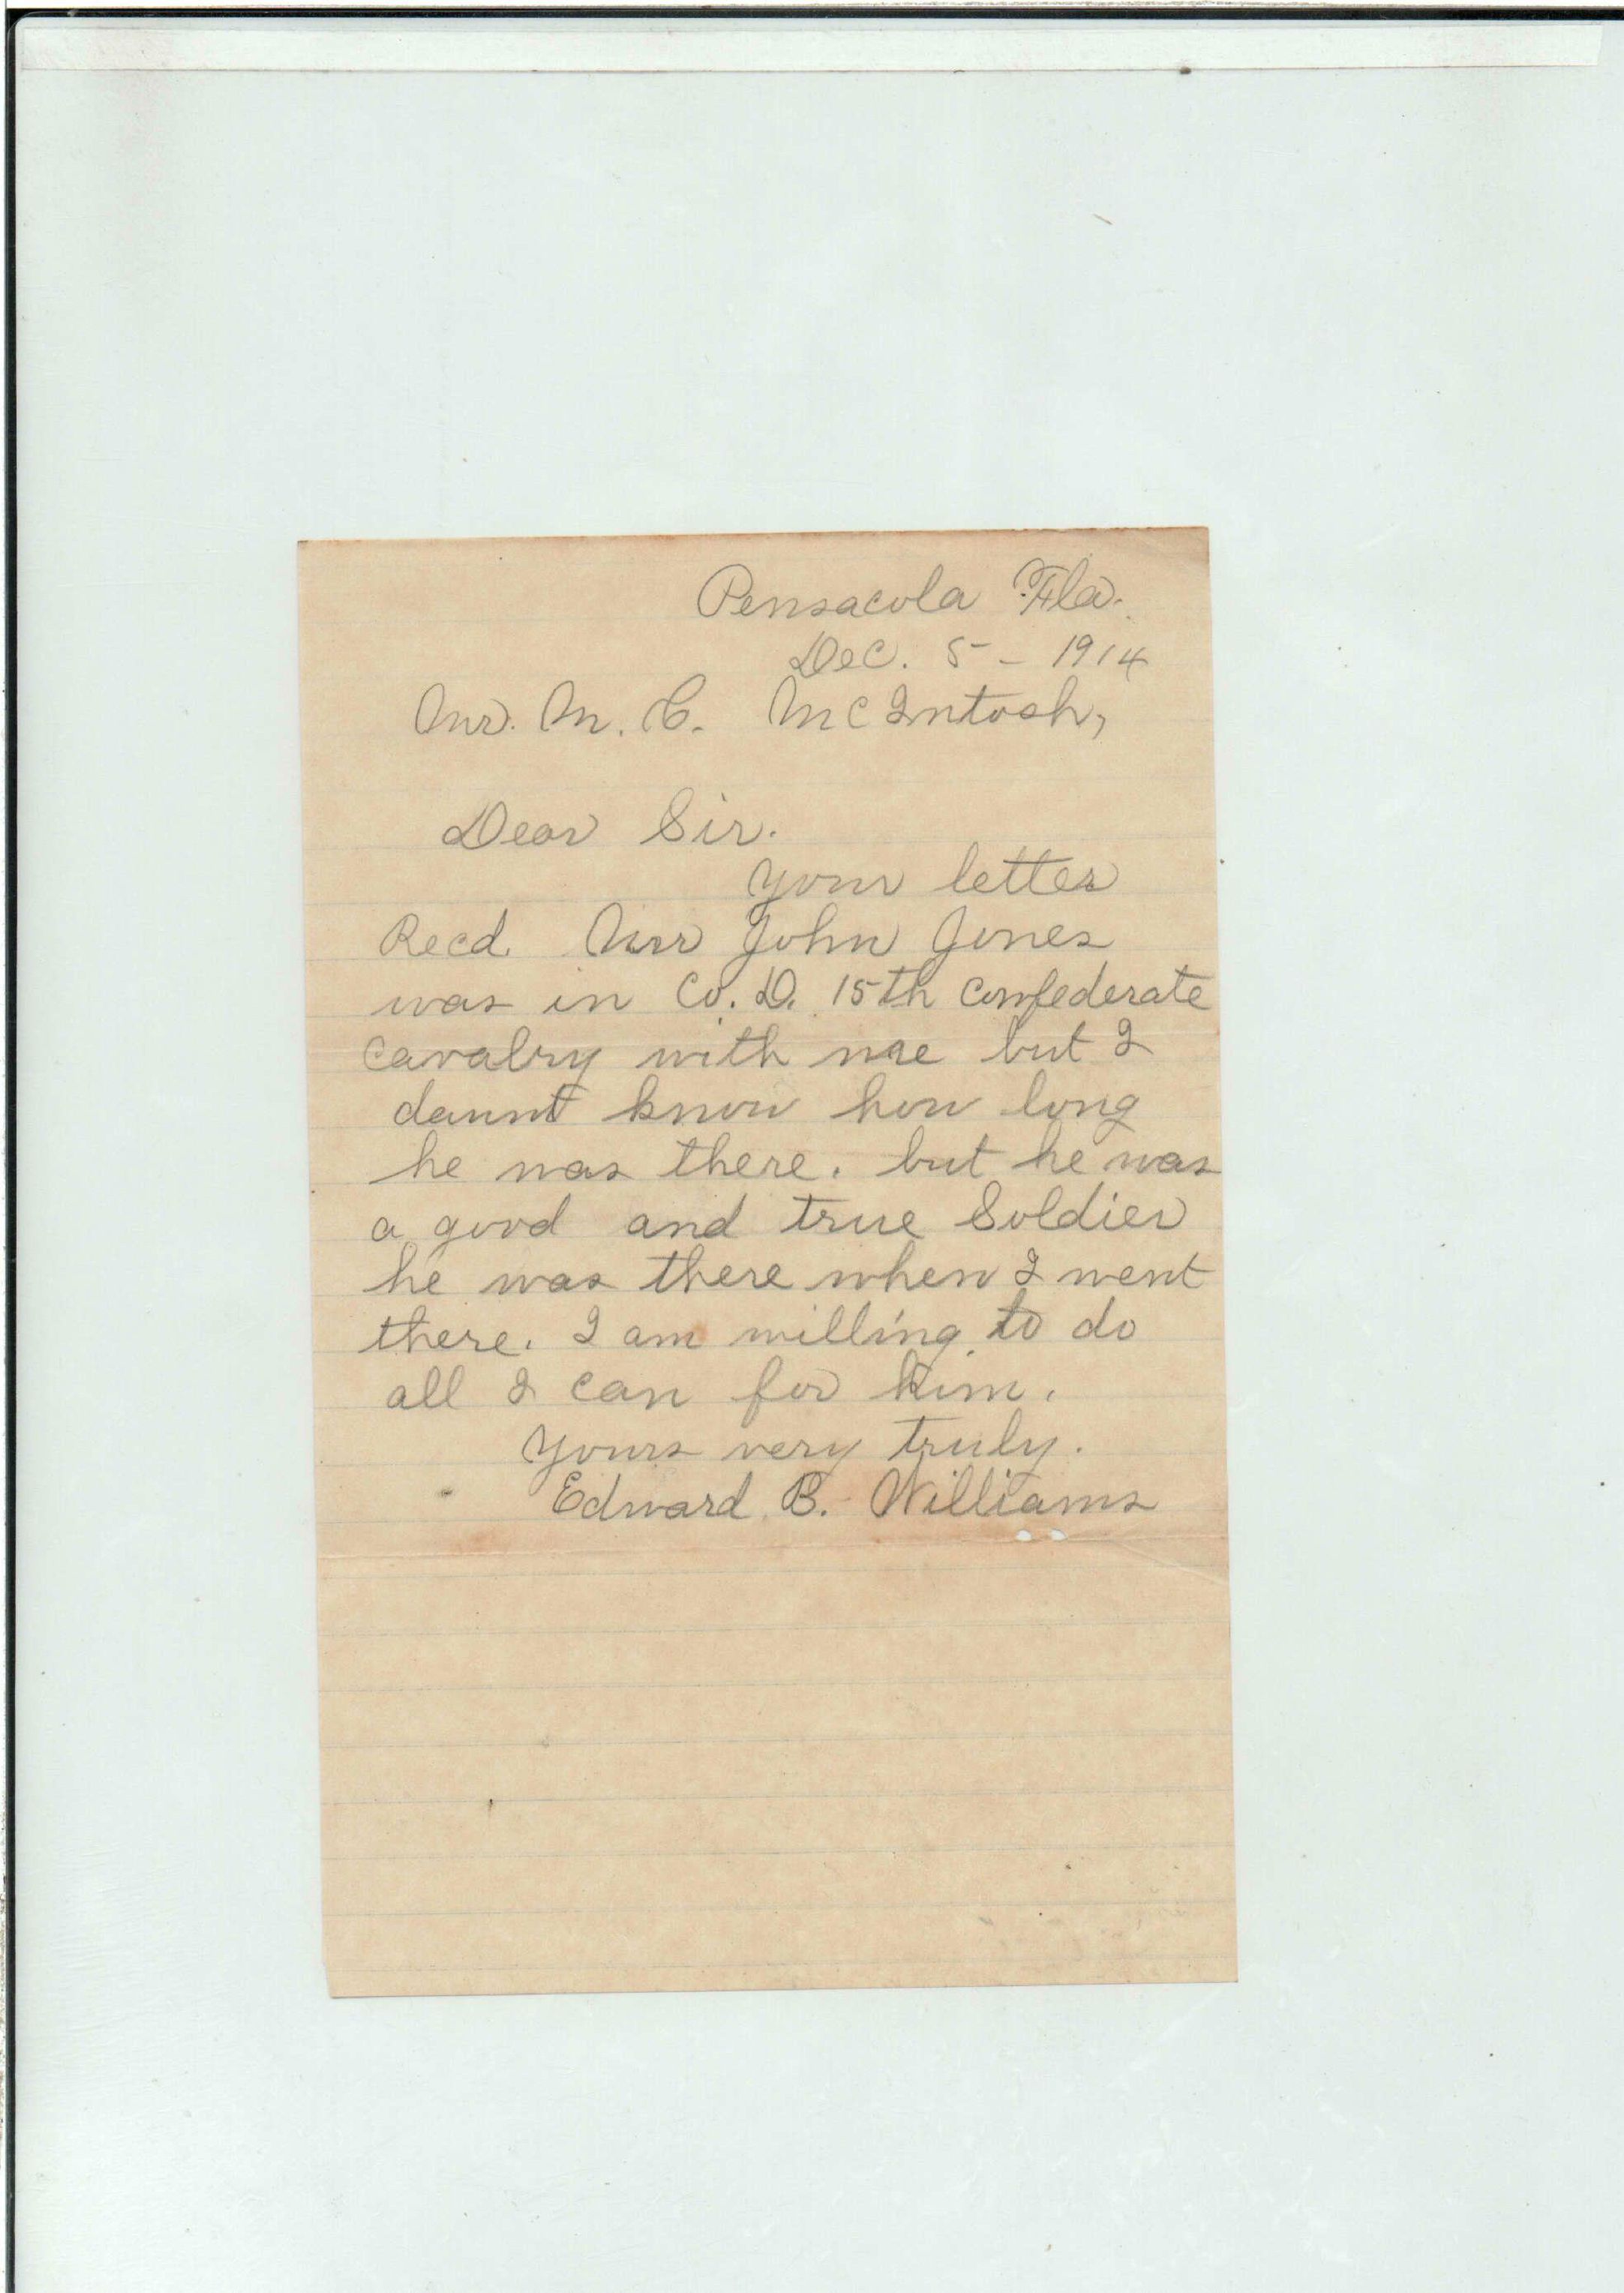 Pensacola Fla.
Dec. 5 - 1914
Mr. M. C. McIntosh,
Dear Sir.
Your letter
Recd. Mr John Jones
was in Co. D. 15th Confederate
Cavalry with me but I
daunt know how long
he was there. but he was
a good and true Soldier
he was there when I went
there. I am willing to do
all I can for him.
Yours very truly.
Edward B. Williams